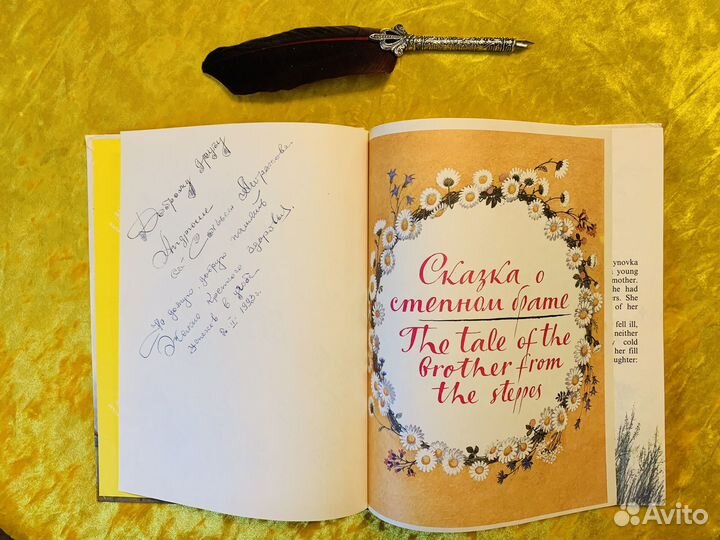 Доброму другу
На долгую, добрую память
Желаю крепкого здоровья,
успехов в
II. 1993г.
Сказка о
степном брате
The tale of the
Brother from
the steppes
ynovka
young
mother.
he had
ers. She
of her
fell ill,
neither
cold
her fill
ughter:
Avito